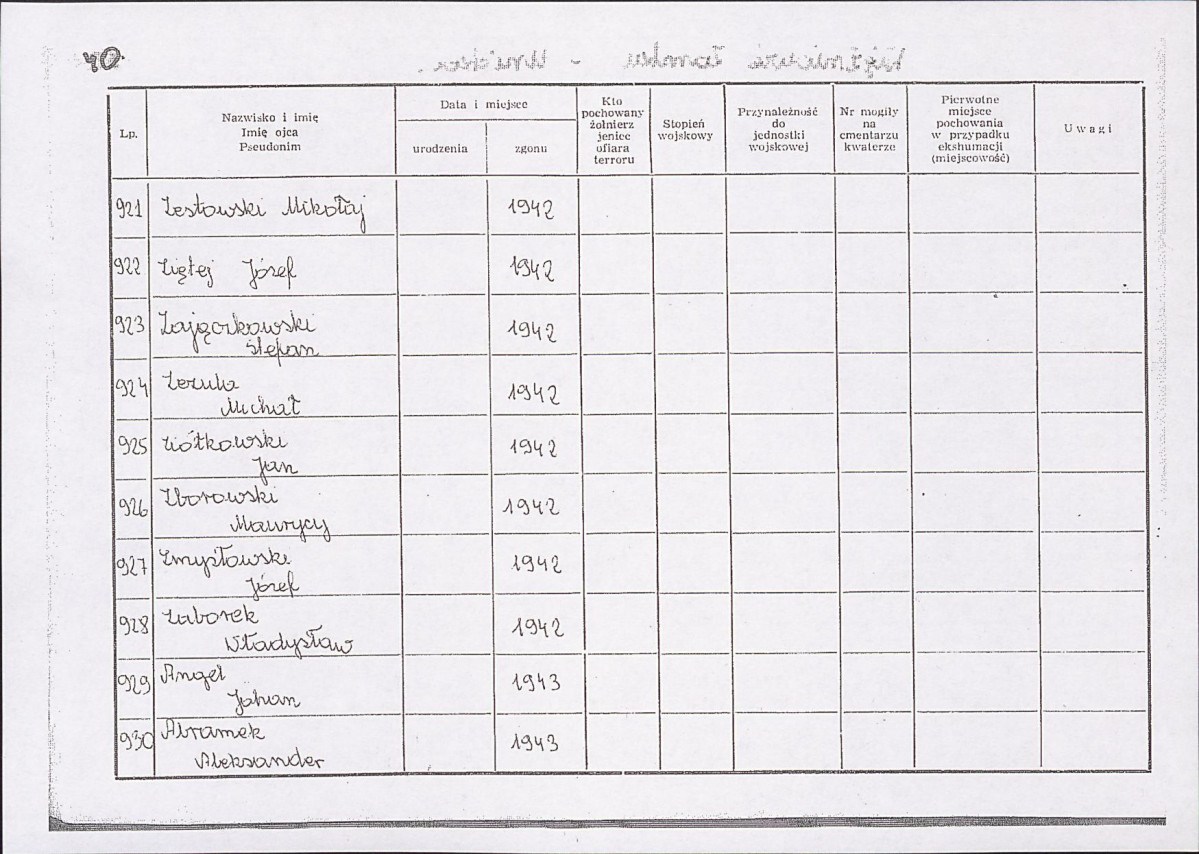 40
Lp.
Nazwisko i imię
Imię ojca
Pseudonim
Data i miejsce
urodzenia
zgonu
Kto
pochowany
żołnierz
jeniec
ofiara
terroru
Stopień
wojskowy
Przynależność
do
jednostki
wojskowej
Nr mogiły
na
cmentarzu
kwaterze
Pierwotne
miejsce
pochowania
w przypadku
ekshumacji
(miejscowość)
Uwagi
921 Zestowski Mikołaj 1942
922 Józef 1942
923 Zajączkowski 1942
Stefan
924 1942
Michał
925 Ziółkowski 1942
Jan
926 Zborowski 1942
Maurycy
927 Zmysłowski 1942
Józef
928 Zaborek 1942
Władysław
929 Angel 1943
Johan
930 Abramek 1943
Aleksander